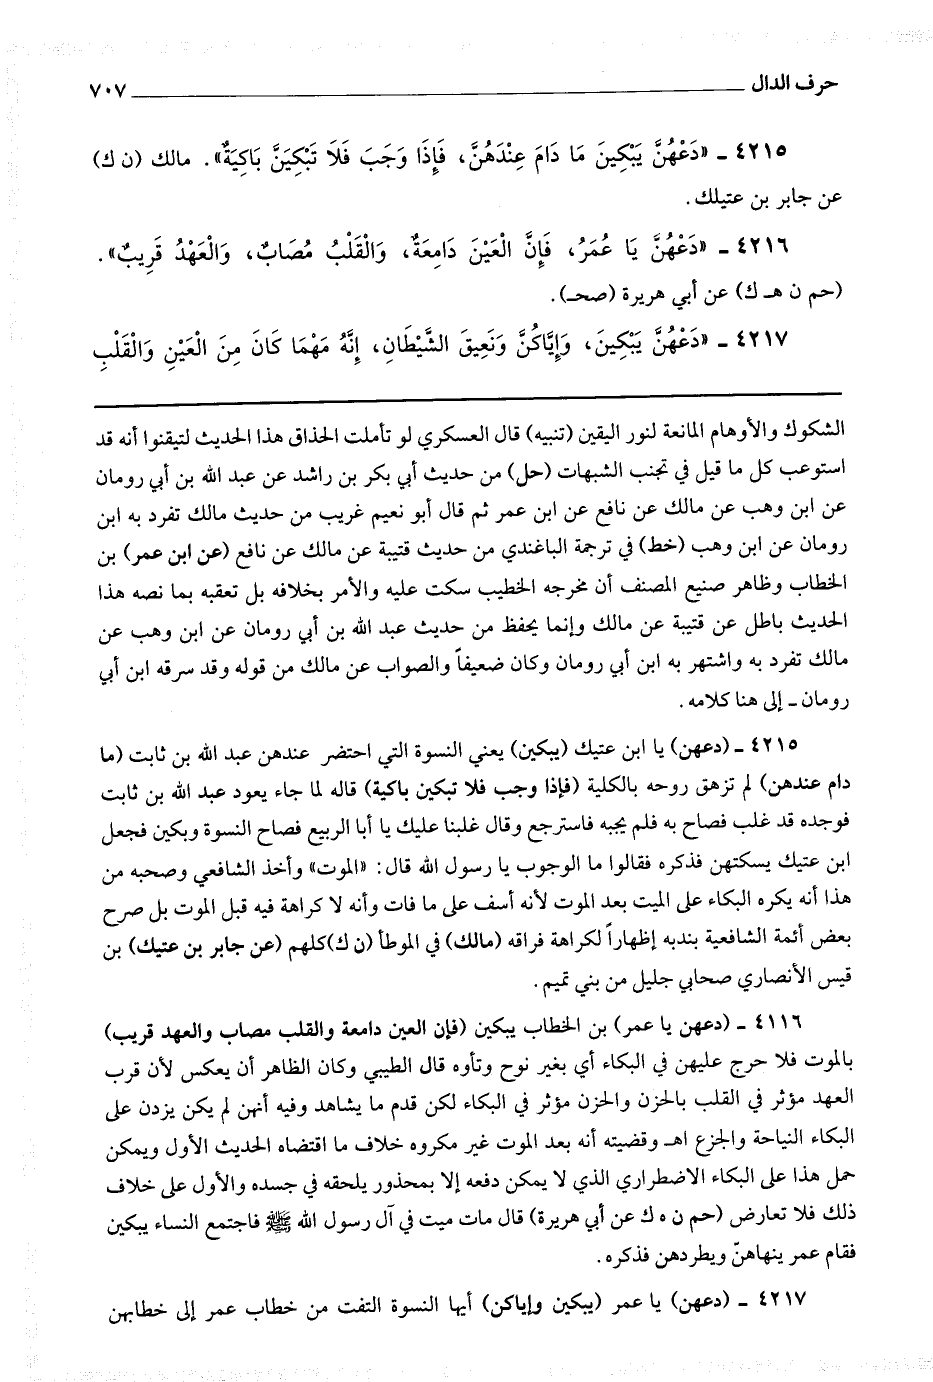 حرف الدال ٧٠٧
٤٢١٥ ـ «دَعْهُنَّ يَبْكِينَ مَا دَامَ عِنْدَهُنَّ، فَإِذَا وَجَبَ فَلَا تَبْكِيَنَّ بَاكِيَةٌ». مالك (ن ك)
عن جابر بن عتيلك.
٤٢١٦ ـ «دَعْهُنَّ يَا عُمَرُ، فَإِنَّ الْعَيْنَ دَامِعَةٌ، وَالْقَلْبُ مُصَابٌ، وَالْعَهْدُ قَرِيبٌ».
(حم ن هـ ك) عن أبي هريرة (صحـ).
٤٢١٧ ـ «دَعْهُنَّ يَبْكِينَ، وَإِيَّاكُنَّ وَنَعِيقَ الشَّيْطَانِ، إِنَّهُ مَهْمَا كَانَ مِنَ الْعَيْنِ وَالْقَلْبِ
الشكوك والأوهام المانعة لنور اليقين (تنبيه) قال العسكري لو تأملت الحذاق هذا الحديث لتيقنوا أنه قد
استوعب كل ما قيل في تجنب الشبهات (حل) من حديث أبي بكر بن راشد عن عبد الله بن أبي رومان
عن ابن وهب عن مالك عن نافع عن ابن عمر ثم قال أبو نعيم غريب من حديث مالك تفرد به ابن
رومان عن ابن وهب (خط) في ترجمة الباغندي من حديث قتيبة عن مالك عن نافع (عن ابن عمر) بن
الخطاب وظاهر صنيع المصنف أن مخرجه الخطيب سكت عليه والأمر بخلافه بل تعقبه بما نصه هذا
الحديث باطل عن قتيبة عن مالك وإنما يحفظ من حديث عبد الله بن أبي رومان عن ابن وهب عن
مالك تفرد به واشتهر به ابن أبي رومان وكان ضعيفاً والصواب عن مالك من قوله وقد سرقه ابن أبي
رومان ـ إلى هنا كلامه.
٤٢١٥ ـ (دعهن) يا ابن عتيك (يبكين) يعني النسوة التي احتضر عندهن عبد الله بن ثابت (ما
دام عندهن) لم تزهق روحه بالكلية (فإذا وجب فلا تبكين باكية) قاله لما جاء يعود عبد الله بن ثابت
فوجده قد غلب فصاح به فلم يجبه فاسترجع وقال غلبنا عليك يا أبا الربيع فصاح النسوة وبكين فجعل
ابن عتيك يسكتهن فذكره فقالوا ما الوجوب يا رسول الله قال: «الموت» وأخذ الشافعي وصحبه من
هذا أنه يكره البكاء على الميت بعد الموت لأنه أسف على ما فات وأنه لا كراهة فيه قبل الموت بل صرح
بعض أئمة الشافعية بندبه إظهاراً لكراهة فراقه (مالك) في الموطأ (ن ك)كلهم (عن جابر بن عتيك) بن
قيس الأنصاري صحابي جليل من بني تميم.
٤١١٦ ـ (دعهن يا عمر) بن الخطاب يبكين (فإن العين دامعة والقلب مصاب والعهد قريب)
بالموت فلا حرج عليهن في البكاء أي بغير نوح وتأوه قال الطيبي وكان الظاهر أن يعكس لأن قرب
العهد مؤثر في القلب بالحزن والحزن مؤثر في البكاء لكن قدم ما يشاهد وفيه أنهن لم يكن يزدن على
البكاء النياحة والجزع اهـ وقضيته أنه بعد الموت غير مكروه خلاف ما اقتضاه الحديث الأول ويمكن
حمل هذا على البكاء الاضطراري الذي لا يمكن دفعه إلا بمحذور يلحقه في جسده والأول على خلاف
ذلك فلا تعارض (حم ن ه ك عن أبي هريرة) قال مات ميت في آل رسول الله ﷺ فاجتمع النساء يبكين
فقام عمر ينهاهنّ ويطردهن فذكره.
٤٢١٧ ـ (دعهن) يا عمر (يبكين وإياكن) أيها النسوة التفت من خطاب عمر إلى خطابهن